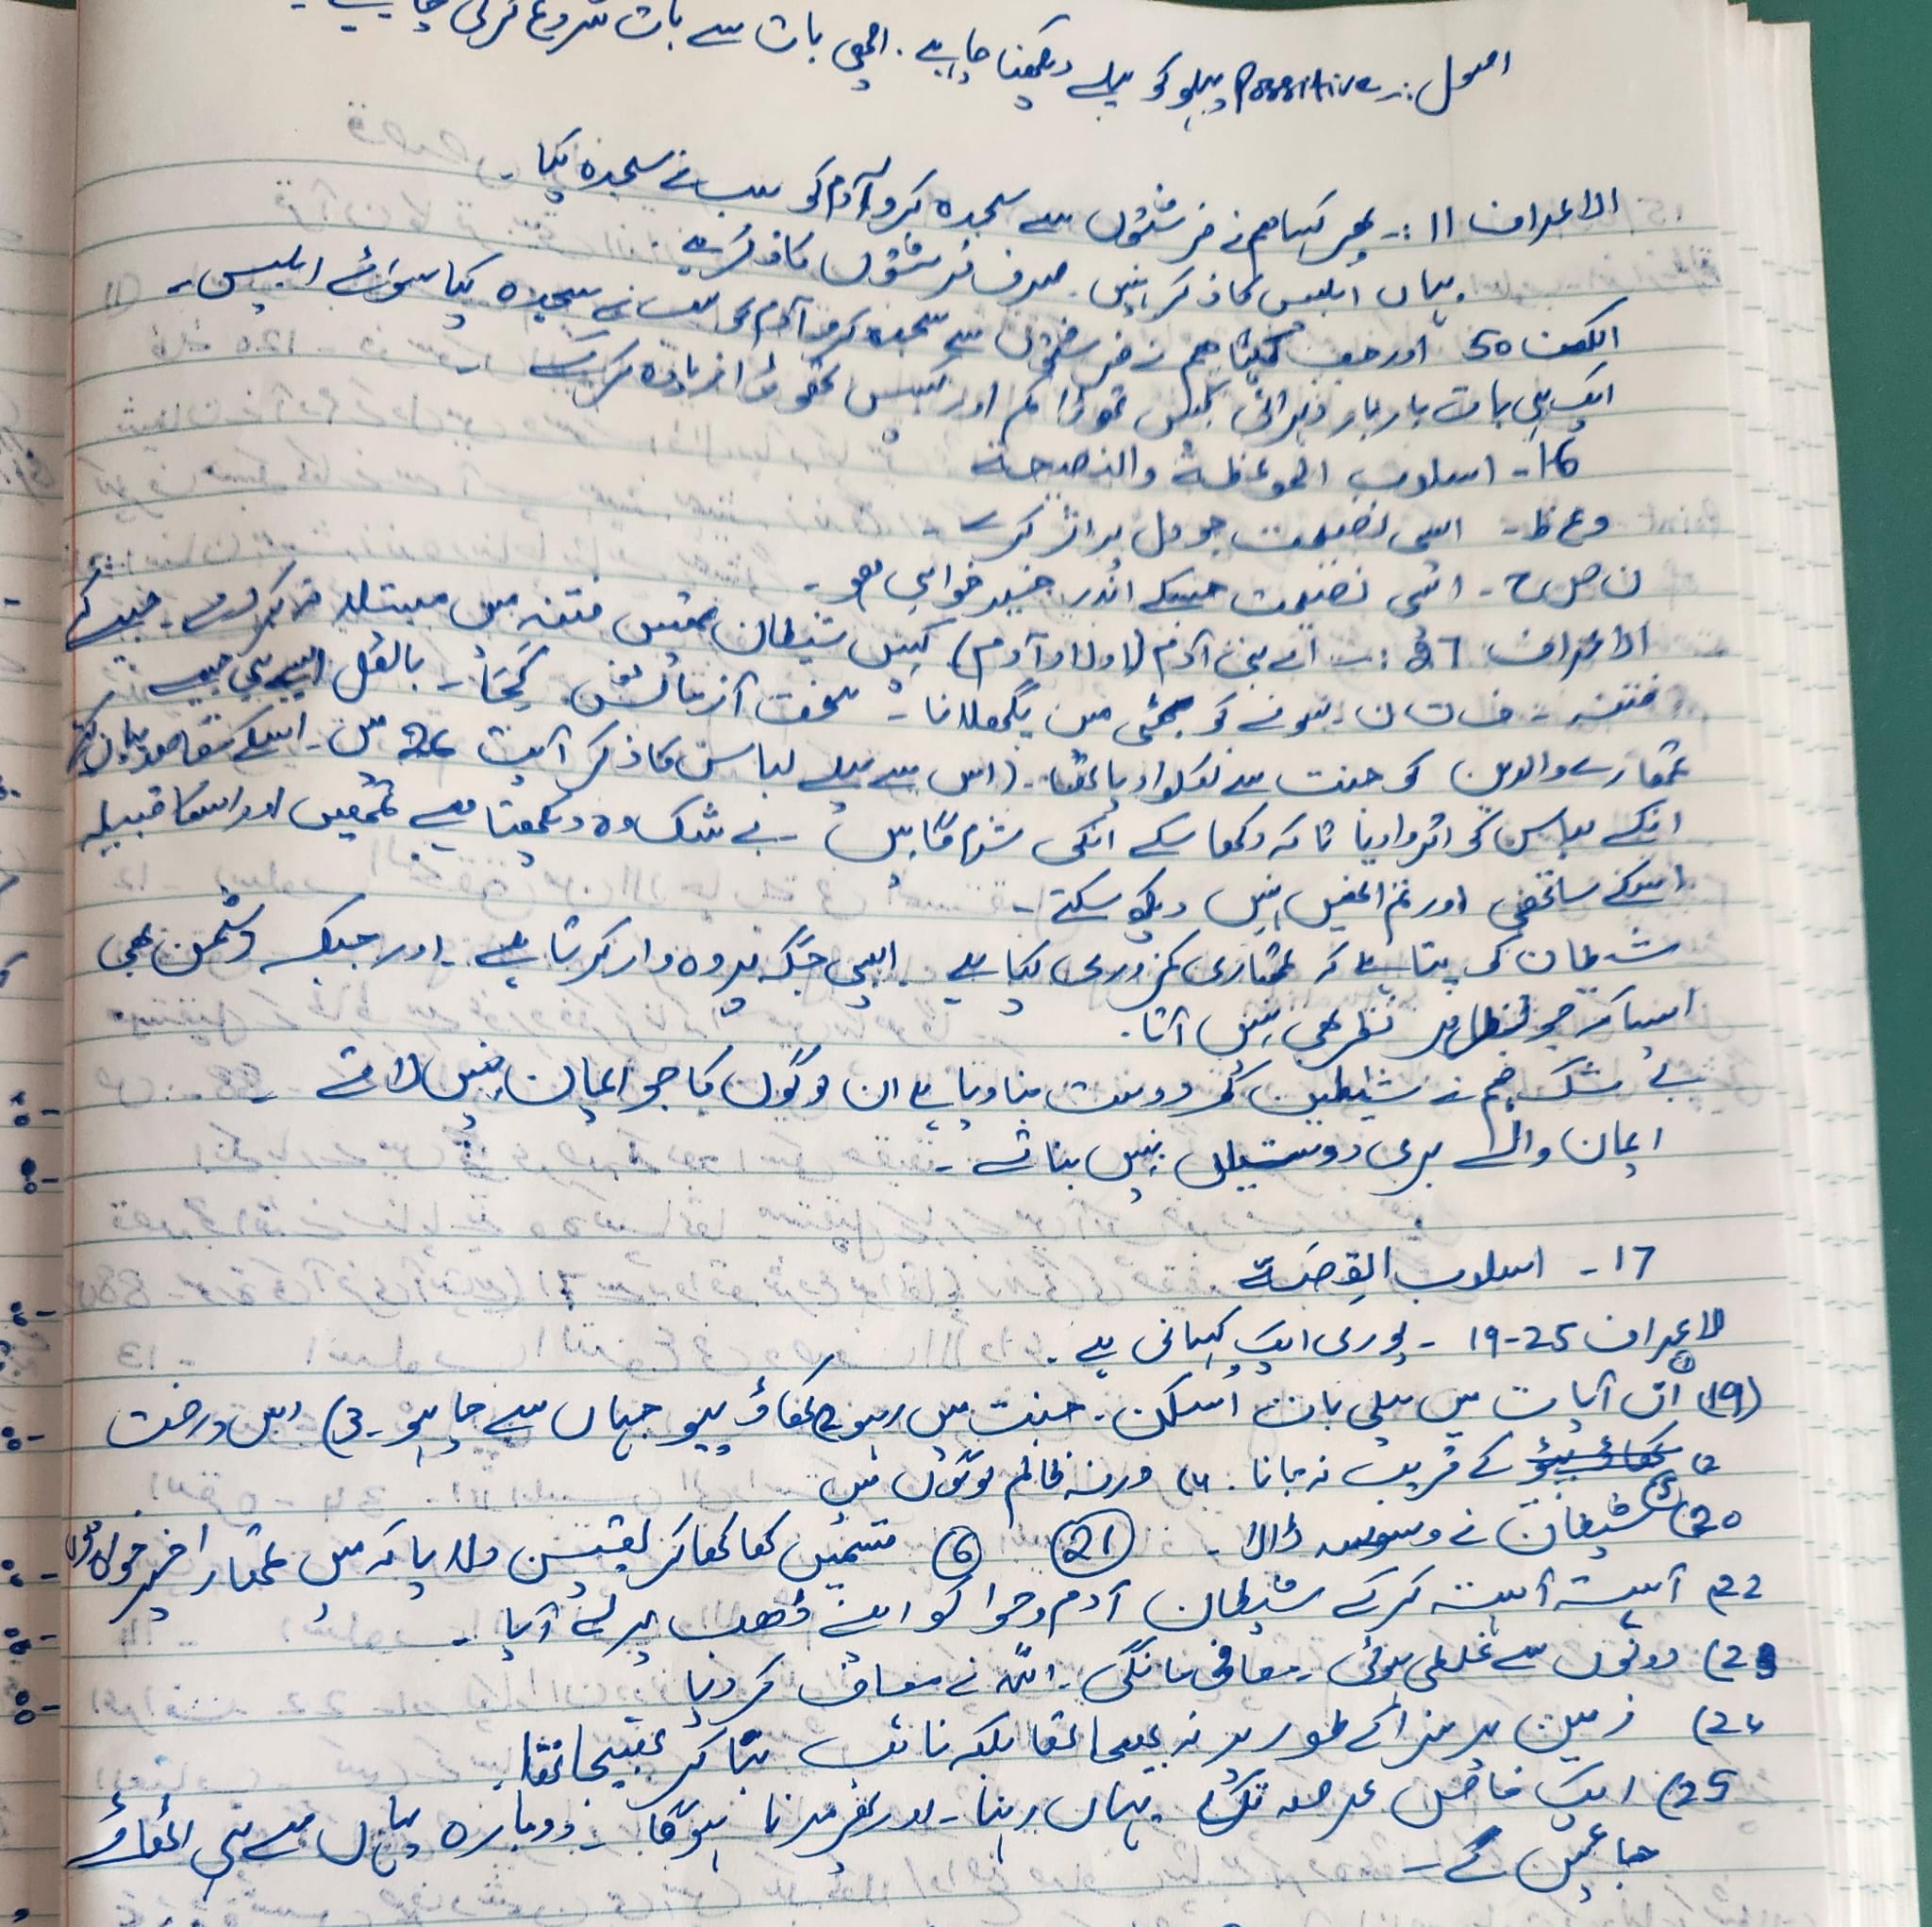 اصول :۔ Possitive پہلو کو پہلے دیکھنا چاہیے۔ اچھی بات سے بات شروع کرنی چاہیے۔
الاعراف 11 :۔ پھر کہا ہم نے فرشتوں سے سجدہ کرو آدم کو سب نے سجدہ کیا۔
یہاں ابلیس کا ذکر نہیں۔ صرف فرشتوں کا ذکر ہے
الکھف 50 اور جب کہا ہم نے فرشتوں سے سجدہ کرو آدم کو سب نے سجدہ کیا سوائے ابلیس۔
ایک ہی بات بار بار دہرائی کہیں تھوڑا کم اور کہیں تھوڑا زیادہ کرکے
16۔ اسلوب الموعظۃ والنصحۃ
وع ظ۔ ایسی نصیحت جو دل پر اثر کرے۔
ن ص ح۔ ایسی نصیحت جسکے اندر خیر خواہی ہو۔
الاعراف 27 :۔ اے بنی آدم (اولاد آدم) کہیں شیطان تمہیں فتنہ میں مبتلا نہ کردے۔ جیسے کے
فتنہ۔ ف ت ن۔ سونے کو بھٹی میں پگھلانا۔ سخت آزمائش۔ بالکل ایسے ہی جیسے
تمھارے والدین کو جنت سے نکلوا دیا تھا۔ (اس سے پہلے لباس کا ذکر آیت 26 میں۔ اسکے مقاصد
انکے لباس کو اتروا دیا تاکہ دکھا سکے انکی شرم گاہیں۔ بے شک وہ دیکھتا ہے تمھیں اور اسکا قبیلہ
اسکے ساتھی اور تم انھیں نہیں دیکھ سکتے۔
شیطان کو پتا ہے کہ تمھاری کمزوری کیا ہے۔ ایسی جگہ پر وہ وار کرتا ہے۔ اور جبکہ دشمن بھی
ایسا کہ جو بظاہر نظر بھی نہیں آتا۔
بے شک ہم نے شیطین کو دوست بنا دیا ہے ان لوگوں کا جو ایمان نہیں لاتے۔
ایمان والے بری دوستیاں نہیں بناتے۔
17۔ اسلوب القِصَۃ
الاعراف 19-25۔ پوری ایک کہانی ہے۔
(19) ان آیات میں پہلی بات اُسکن۔ جنت میں رہو 2) کھاؤ پیو جہاں سے چاہو۔ 3) اس درخت
کے قریب نہ جانا۔ 4) ورنہ ظالم لوگوں میں
20) 5 شیطان نے وسوسہ ڈالا۔ 21 6 قسمیں کھا کھا کر یقین دلایا کہ میں تمھارا خیر خواہ ہوں
22) آہستہ آہستہ کرکے شیطان آدم و حوا کو اپنے ڈھب پر لے آیا۔
23) دونوں سے غلطی ہوئی۔ معافی مانگی۔ اللہ نے معاف کر دیا
24) زمین پر سزا کے طور پر نہ بھیجا تھا بلکہ نائب بنا کر بھیجا تھا۔
25) ایک خاص عرصہ تک یہاں رہنا۔ اور پھر مرنا ہوگا۔ دوبارہ یہاں سے ہی اٹھائے
جائیں گے۔